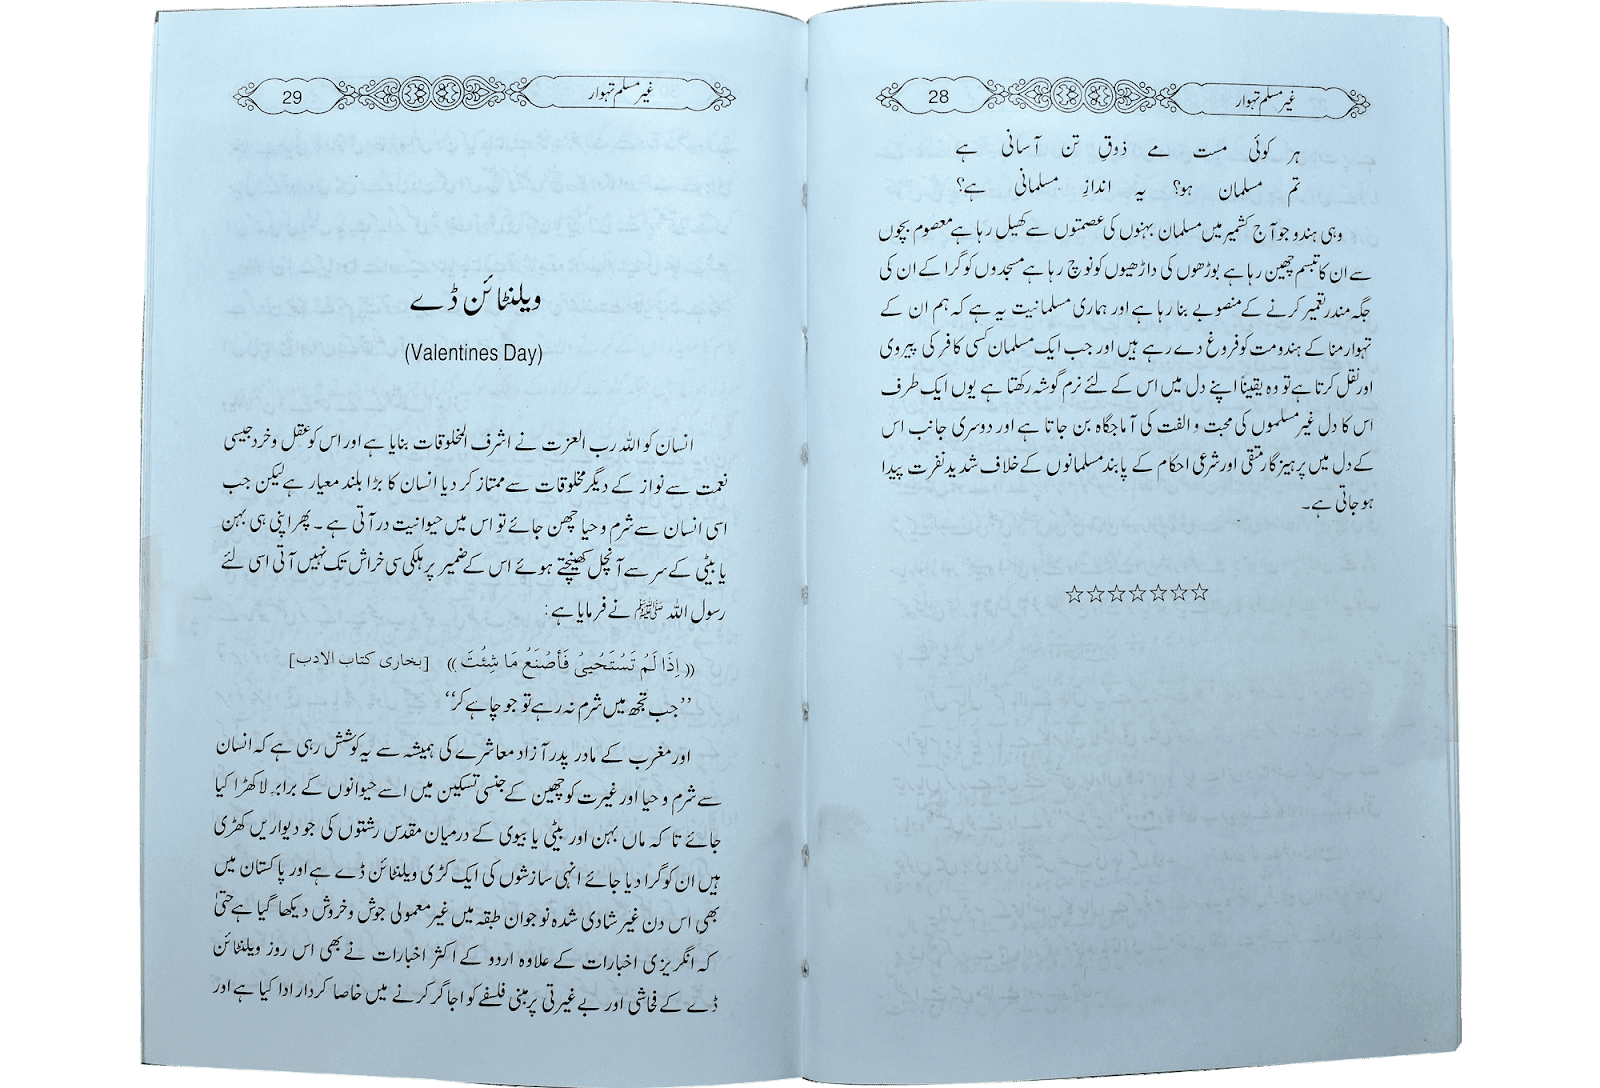 غیر مسلم تہوار
28
ہر کوئی مست مے ذوقِ تن آسانی ہے
تم مسلمان ہو؟ یہ اندازِ مسلمانی ہے؟
وہی ہندو جو آج کشمیر میں مسلمان بہنوں کی عصمتوں سے کھیل رہا ہے معصوم بچوں
سے ان کا تبسم چھین رہا ہے بوڑھوں کی داڑھیوں کو نوچ رہا ہے مسجدوں کو گرا کے ان کی
جگہ مندر تعمیر کرنے کے منصوبے بنا رہا ہے اور ہماری مسلمانیت یہ ہے کہ ہم ان کے
تہوار منا کے ہندومت کو فروغ دے رہے ہیں اور جب ایک مسلمان کسی کافر کی پیروی
اور نقل کرتا ہے تو وہ یقیناً اپنے دل میں اس کے لئے نرم گوشہ رکھتا ہے یوں ایک طرف
اس کا دل غیر مسلموں کی محبت و الفت کی آماجگاہ بن جاتا ہے اور دوسری جانب اس
کے دل میں پرہیزگار متقی اور شرعی احکام کے پابند مسلمانوں کے خلاف شدید نفرت پیدا
ہو جاتی ہے۔
☆☆☆☆☆☆☆
غیر مسلم تہوار
29
ویلنٹائن ڈے
(Valentines Day)
انسان کو اللہ رب العزت نے اشرف المخلوقات بنایا ہے اور اس کو عقل و خرد جیسی
نعمت سے نواز کے دیگر مخلوقات سے ممتاز کر دیا انسان کا بڑا بلند معیار ہے لیکن جب
اسی انسان سے شرم و حیا چھن جائے تو اس میں حیوانیت در آتی ہے ۔ پھر اپنی ہی بہن
یا بیٹی کے سر سے آنچل کھینچتے ہوئے اس کے ضمیر پر ہلکی سی خراش تک نہیں آتی اسی لئے
رسول اللہ ﷺ نے فرمایا ہے:
(( اِذَا لَمْ تَسْتَحْيِيْ فَأصْنَعْ مَا شِئْتَ )) [بخاری کتاب الادب]
’’جب تجھ میں شرم نہ رہے تو جو چاہے کر‘‘
اور مغرب کے مادر پدر آزاد معاشرے کی ہمیشہ سے یہ کوشش رہی ہے کہ انسان
سے شرم و حیا اور غیرت کو چھین کے جنسی تسکین میں اسے حیوانوں کے برابر لا کھڑا کیا
جائے تا کہ ماں بہن اور بیٹی یا بیوی کے درمیان مقدس رشتوں کی جو دیواریں کھڑی
ہیں ان کو گرا دیا جائے انہی سازشوں کی ایک کڑی ویلنٹائن ڈے ہے اور پاکستان میں
بھی اس دن غیر شادی شدہ نوجوان طبقہ میں غیر معمولی جوش و خروش دیکھا گیا ہے حتیٰ
کہ انگریزی اخبارات کے علاوہ اردو کے اکثر اخبارات نے بھی اس روز ویلنٹائن
ڈے کے فحاشی اور بے غیرتی پر مبنی فلسفے کو اجاگر کرنے میں خاصا کردار ادا کیا ہے اور